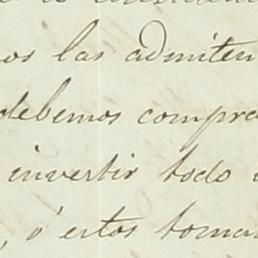 os las admiten
debemos compra
invertir todo
, ó estos toma